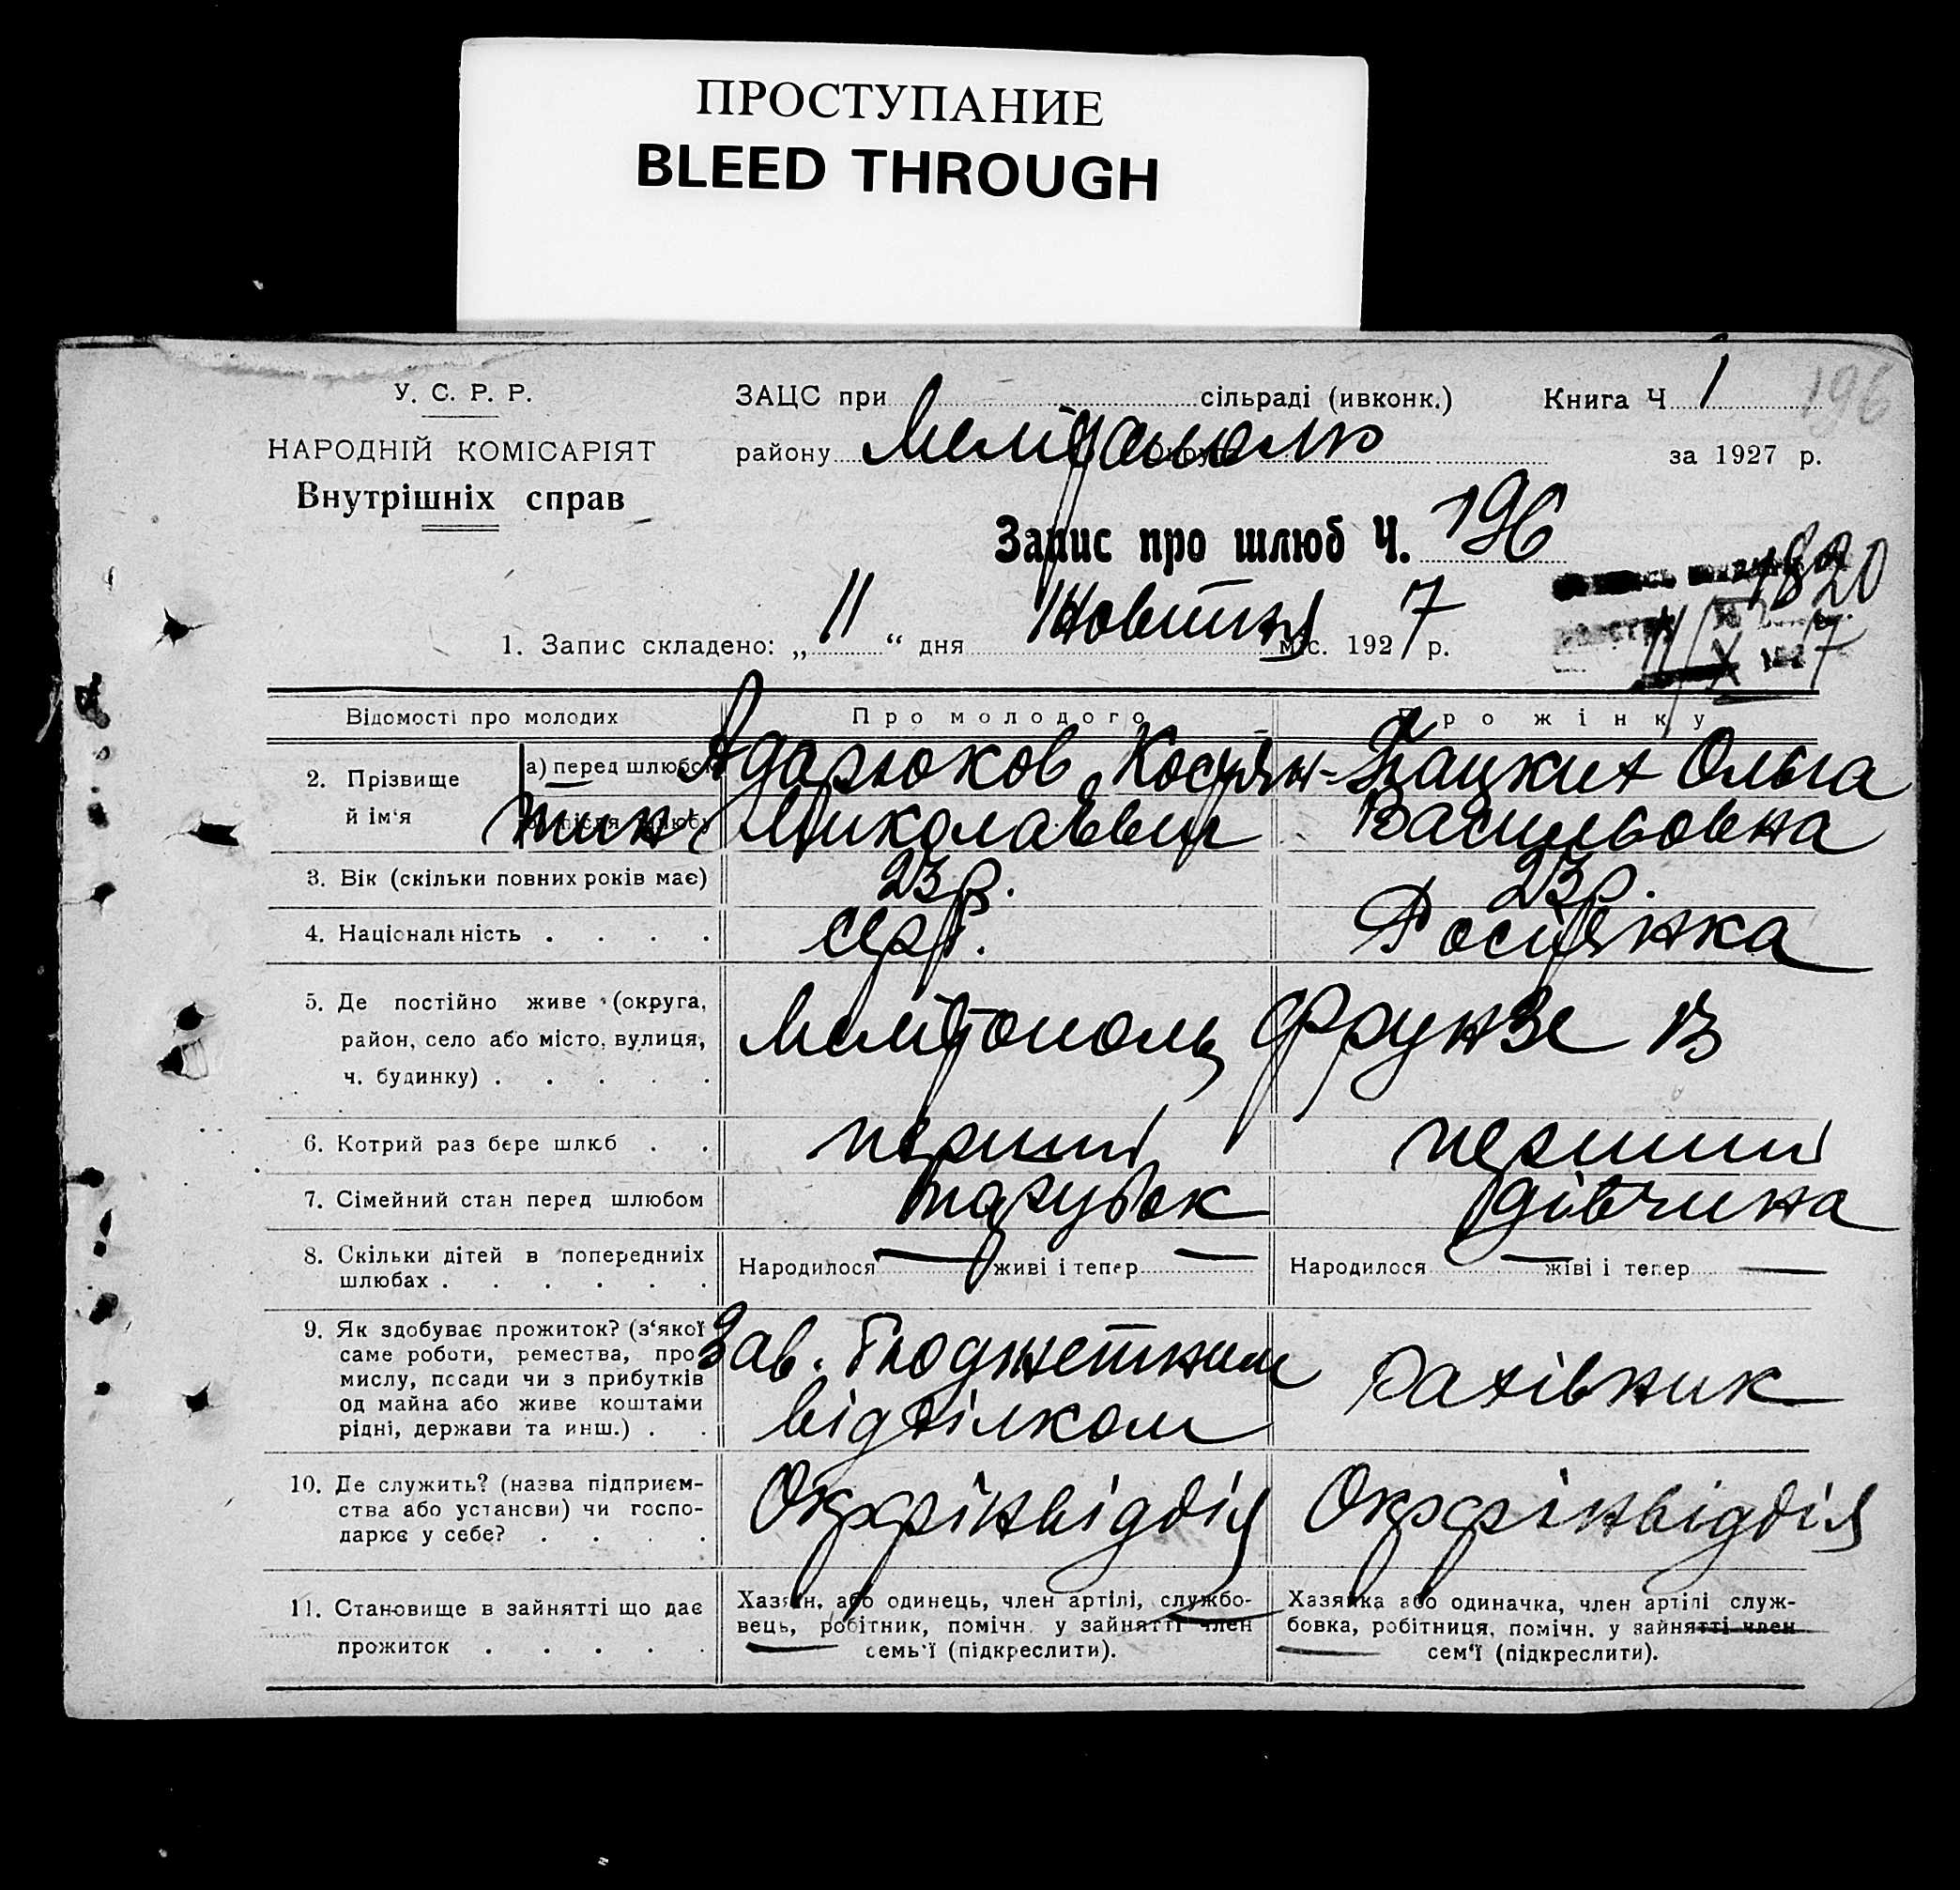 ПРОСТУПАНИЕ
BLEED THROUGH
У. С. Р. Р.
НАРОДНІЙ КОМІСАРІЯТ
Внутрішніх справ
ЗАЦС при сільраді (ивконк.)
району
Книга Ч 1
196
за 1927 р.
Запис про шлюб Ч. 196
1820
1. Запис складено: „ 11 “ дня Жовтня міс. 1927 р.
11/X 7
Відомості про молодих
Про молодого
Про жінку
2. Прізвище й ім‘я
а) перед шлюбом
після шлюбу
Костян-
тин Миколаєвич
Ольга
Васильовна
3. Вік (скільки повних років має)
23 р.
23 р.
4. Національність . . . .
Росіянка
5. Де постійно живе (округа,
район, село або місто, вулиця,
ч. будинку) . . . . .
Мелітополь Фрунзе 13
6. Котрий раз бере шлюб . .
перший
перший
7. Сімейний стан перед шлюбом
парубок
дівчина
8. Скільки дітей в попередниіх
шлюбах . . . . . .
Народилося — живі і тепер —
Народилося — живі і тепер —
9. Як здобуває прожиток? (з‘якої
саме роботи, ремества, про-
мислу, посади чи з прибутків
од майна або живе коштами
рідні, держави та инш.) . .
Зав. Бюджетним
відділком
Рахівник
10. Де служить? (назва підприєм-
ства або установи) чи госпо-
дарює у себе? . . . .
Окрфінвідділ
Окрфінвідділ
11. Становище в зайнятті що дає
прожиток . . . . .
Хазяїн, або одинець, член артілі, службо-
вець, робітник, помічн. у зайнятті член
семь‘ї (підкреслити).
Хазяйка або одиначка, член артілі служ-
бовка, робітниця, помічн. у зайнятті член
сем‘ї (підкреслити).